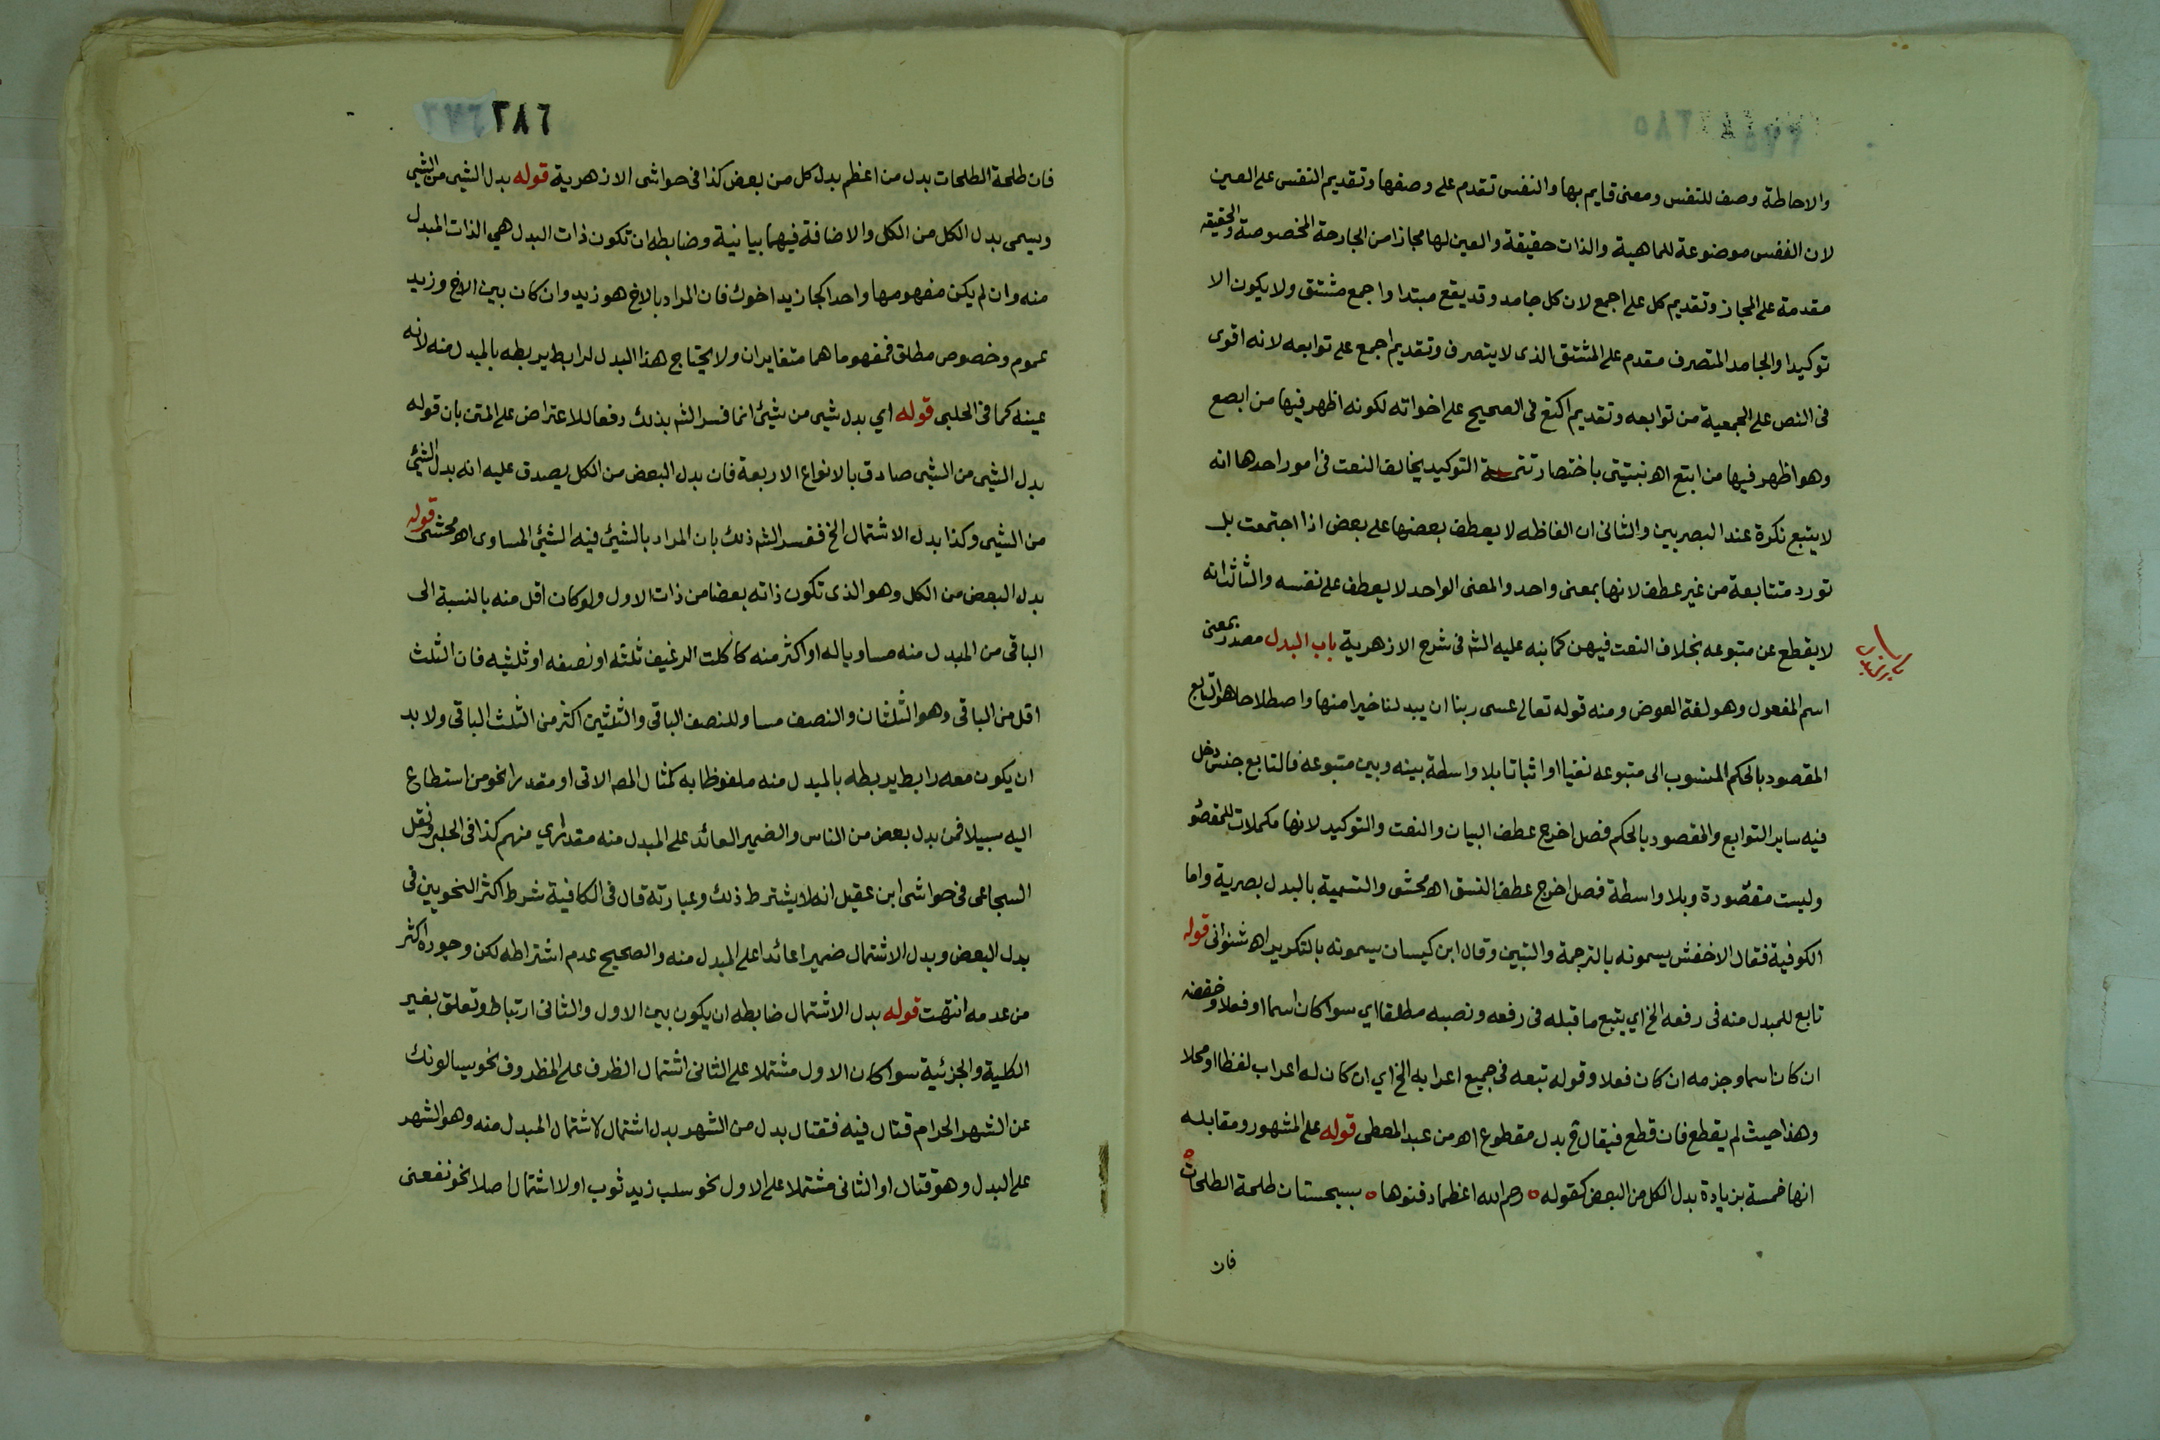 والاحاطة وصف للنفس ومعنى قايم بها والنفس تقدم على وصفها وتقديم النفس على العين
لان النفس موضوعة للماهية والذات حقيقة والعين لها مجازا من الجارحة المخصوصة والحقيقه
مقدمة على المجاز وتقديم كل على اجمع لان كل جامد وقد يقع مبتدا واجمع مشتق ولا يكون الا
توكيدا والجامد المتصرف مقدم على المشتق الذى لا يتصرف وتقديم اجمع على توابعه لانه اقوى
فى النص على الجمعية من توابعه وتقديم اكتع فى الصحيح على اخواته لكونه اظهر فيها من ابصع
وهو اظهر فيها من ابتع اه نبتيتى باختصار تتمة التوكيد يخالف النعت فى امور احدها انه
لا يتبع نكرة عند البصريين والثانى ان الفاظه لا يعطف بعضها على بعض اذا اجتمعت بل
تورد متتابعة من غير عطف لانها بمعنى واحد والمعنى الواحد لا يعطف على نفسه والثالث انه
لا يقطع عن متبوعه بخلاف النعت فيهن كما نبه عليه الشم فى شرح الازهرية باب البدل مصدر بمعنى
اسم المفعول وهو لغة العوض ومنه قوله تعالى عسى ربنا ان يبدلنا خيرا منها واصطلاحا هو التابع
المقصود بالحكم المنسوب الى متبوعه نفيا او اثباتا بلا واسطة بينه وبين متبوعه فالتابع جنس دخل
فيه ساير التوابع والمقصود بالحكم فصل اخرج عطف البيان والنعت والتوكيد لانها مكملات للمقصود
وليست مقصورة وبلا واسطة فصل اخرج عطف النسق اه محشى والتسمية بالبدل بصرية واما
الكوفية فقال الاخفش يسمونه بالترجمة والتبين وقال ابن كيسان يسمونه بالتكرير اه شنوانى قوله
تابع للمبدل منه فى رفعه الخ اي يتبع ما قبله فى رفعه ونصبه مطلقا اي سوا كان اسما او فعلا وخفضه
ان كان اسما وجزمه ان كان فعلا وقوله تبعه فى جميع اعرابه الخ اي ان كان له اعراب لفظا او محلا
وهذا حيث لم يقطع فان قطع فيقال ح بدل مقطوع اه من عبد المعطى قوله على المشهور ومقابله
انها خمسة بزيادة بدل الكل من البعض كقوله ه رحم الله اعظما دفنوها ه بسجستان طلحة الطلحات ه
فان
٢٨٦
فان طلحة الطلحات بدل من اعظم بدل كل من بعض كذا فى حواشى الازهرية قوله بدل الشيى من الشيى
ويسمى بدل الكل من الكل والاضافة فيهما بيانية وضابطه ان تكون ذات البدل هي الذات المبدل
منه وان لم يكن مفهومها واحدا كجا زيد اخوك فان المراد بالاخ هو زيد وان كان بين الاخ وزيد
عموم وخصوص مطلق فمفهوما هما متغايران ولا يحتاج هذا البدل لرابط يربطه بالمبدل منه لانه
عينه كما فى الحلبى قوله اي بدل شيى من شيئ انما فسر الشم بذلك دفعا للاعتراض على المتن بان قوله
بدل الشيى من الشيى صادق بالانواع الاربعة فان بدل البعض من الكل يصدق عليه انه بدل الشيئ
من الشيى وكذا بدل الاشتمال الخ ففسر الشم ذلك بان المراد بالشيئ فيه الشيئ المساوى اه محشى قوله
بدل البعض من الكل وهو الذى تكون ذاته بعضا من ذات الاول ولو كان اقل منه بالنسبة الى
الباقى من المبدل منه مساويا له او اكثر منه كاكلت الرغيف ثلثه او نصفه او ثلثيه فان الثلث
اقل من الباقى وهو الثلثان والنصف مساو للنصف الباقى والثلثين اكثر من الثلث الباقى ولا بد
ان يكون معه رابط يربطه بالمبدل منه ملفوظا به كمثال المص الاتى او مقدرا نحو من استطاع
اليه سبيلا فمن بدل بعض من الناس والضمير العائد على المبدل منه مقدر اي منهم كذا فى الحلبى ونقل
السجاعى فى حواشى ابن عقيل انه لا يشترط ذلك وعبارته قال فى الكافية شرط اكثر النحويين فى
بدل البعض وبدل الاشتمال ضميرا عائدا على المبدل منه والصحيح عدم اشتراطه لكن وجوده اكثر
من عدمه انتهت قوله بدل الاشتمال ضابطه ان يكون بين الاول والثانى ارتباط وتعلق بغير
الكلية والجزئية سوا كان الاول مشتملا على الثانى اشتمال الظرف على المظروف نحو يسالونك
عن الشهر الحرام قتال فيه فقتال بدل من الشهر بدل اشتمال لاشتمال المبدل منه وهو الشهر
على البدل وهو قتال او الثانى مشتملا على الاول نحو سلب زيد ثوب اولا اشتمال اصلا نحو نفعنى